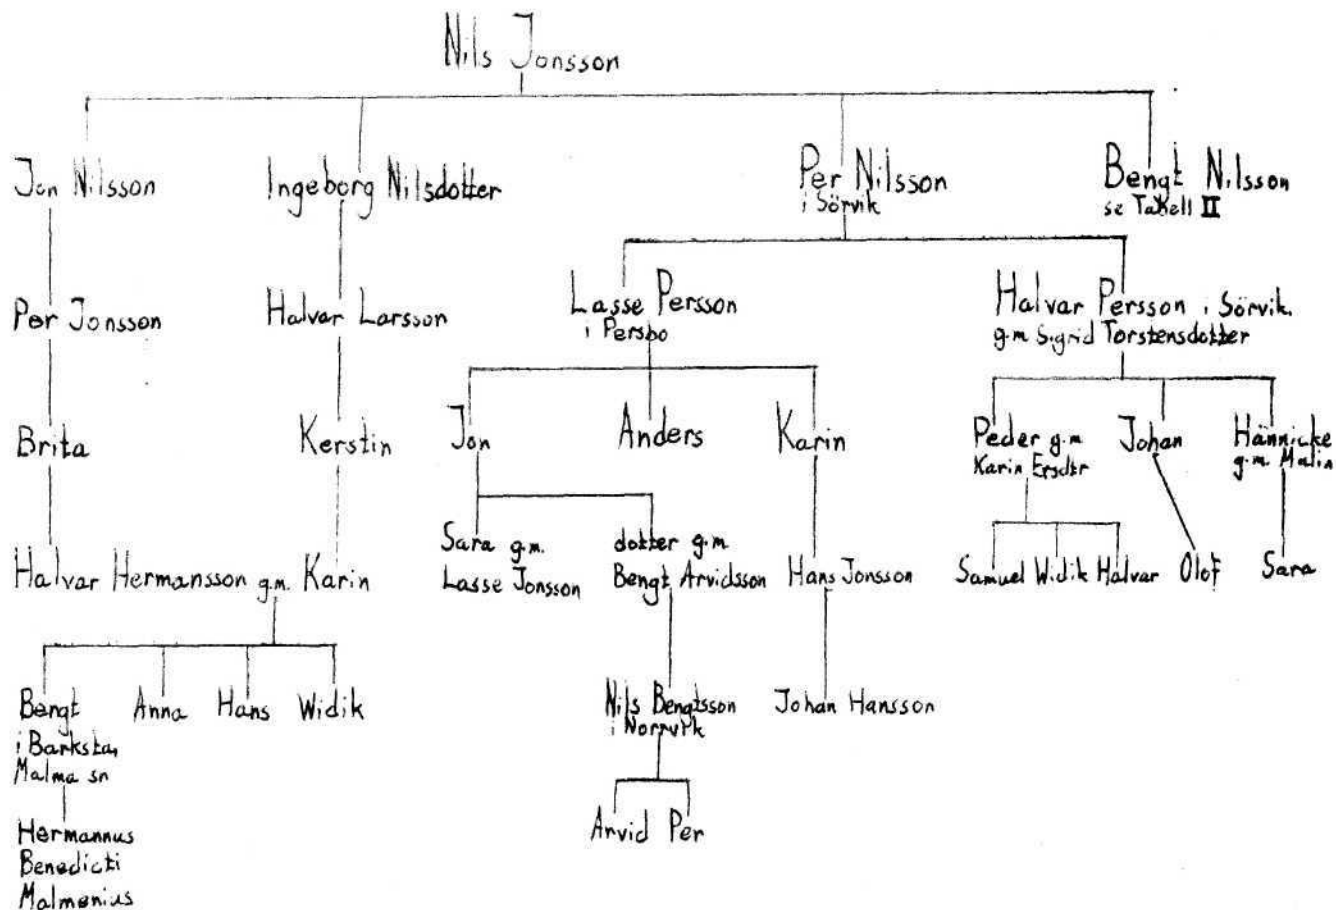 Nils Jonsson
Jon Nilsson
Ingeborg Nilsdotter
Per Nilsson
i Sörvik
Bengt Nilsson
se Tabell II
Per Jonsson
Halvar Larsson
Lasse Persson
i Persbo
Halvar Persson i Sörvik.
g.m Sigrid Torstensdotter
Brita
Kerstin
Jon
Anders
Karin
Peder g.m
Karin Ersdtr
Johan
Hännicke
g.m. Malin
Halvar Hermansson g.m. Karin
Sara g.m.
Lasse Jonsson
dotter g.m
Bengt Arvidsson
Hans Jonsson
Samuel Widik Halvar
Olof
Sara
Bengt
i Barksta,
Malma sn
Anna
Hans
Widik
Nils Bengtsson
i Norrvik
Johan Hansson
Hermannus
Benedicti
Malmenius
Arvid Per